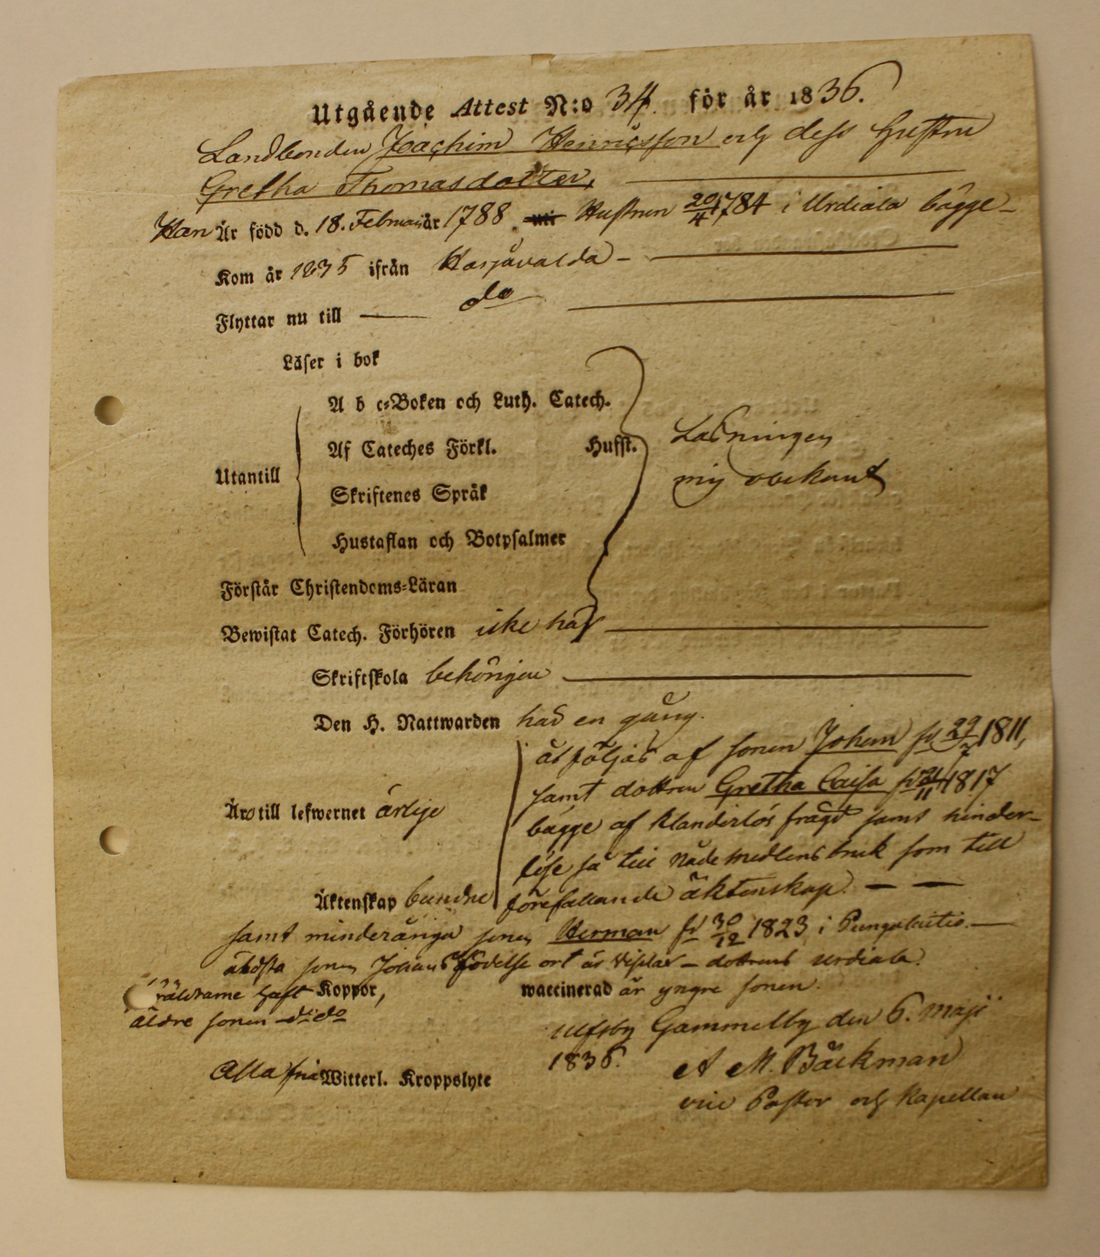 Utgående Attest N:o 34. för år 1836.
Landbonden Joachim Henricsson och dess hustru
Gretha Thomasdotter,
Han Är född d. 18. Februarii år 1788. Hustrun 20/4 1784 i Urdiala bägge –
Kom år 1835 ifrån
Flyttar nu till do
Läser i bok
A b c-Boken och Luth. Catech.
Af Cateches Förkl. Husst.
Utantill
Skriftenes Språk
Läsningen
mig obekant
Hustaflan och Botpsalmer
Förstår Christendoms-Läran
Bewistat Catech. Förhören icke här
Skriftskola behörigen
Den H. Nattwarden här en gång.
åtföljas af sonen Johan fd 22/7 1811,
samt dottren Gretha Caisa fd 21/11 1817
Äro till lefwernet ärlige
bägge af klanderlös frägd samt hinder-
löse så till Nådemedlens bruk som till
Äktenskap bundne
förefallande äktenskap. — —
samt minderåriga sonen Herman fd 30/12 1823 i
äldsta sonen Johans födelse ort är – dottrens Urdiala.
Föräldrarne haft Koppor, waccinerad är yngre sonen.
äldre sonen do do
Ulfsby Gammelby den 6. Maji
1836.
Alla fria Witterl. Kroppslyte
A M. Bäckman
vice Pastor och Kapellan